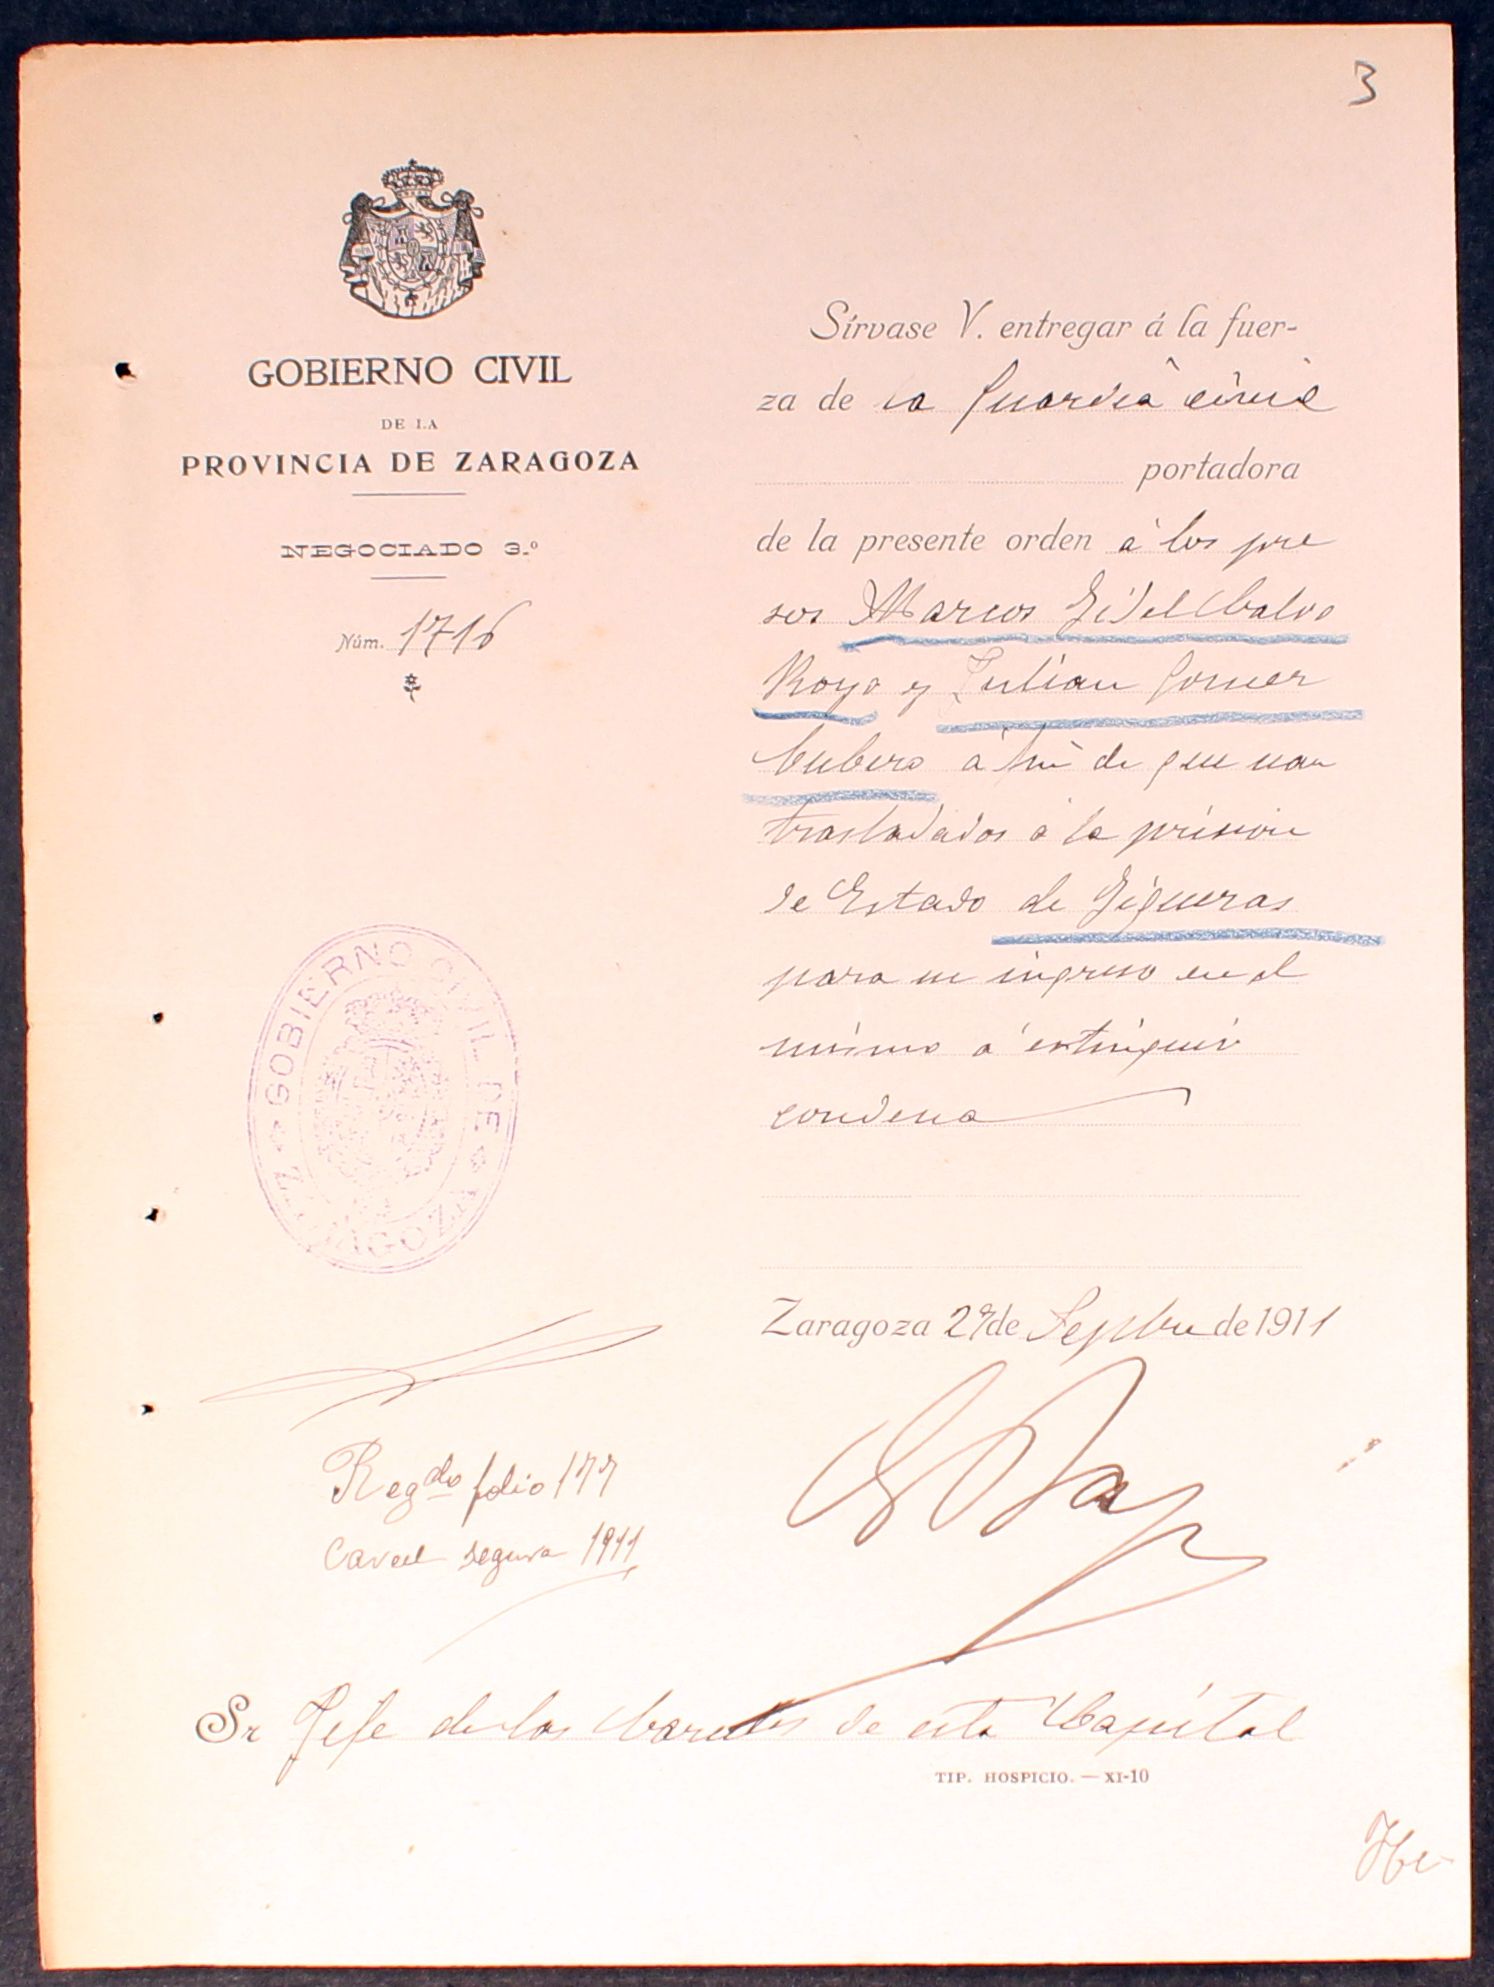 3
GOBIERNO CIVIL
DE LA
PROVINCIA DE ZARAGOZA
NEGOCIADO 3.º
Núm. 1716
Sírvase V. entregar á la fuer-
za de la Guardia civil
portadora
de la presente orden á los pre
sos Marcos Fidel Calvo
Royo y Julian Gomez
Cubero a fin de que sean
trasladados á la prision
de Estado de Figueras
para su ingreso en el
mismo á extinguir
condena
GOBIERNO CIVIL DE
ZARAGOZA
Zaragoza 27 de Sepbre de 1911
Regdo folio 177
Carcel segura 1911
Sr Jefe de las Carceles de esta Capital
TIP. HOSPICIO. — XI-10